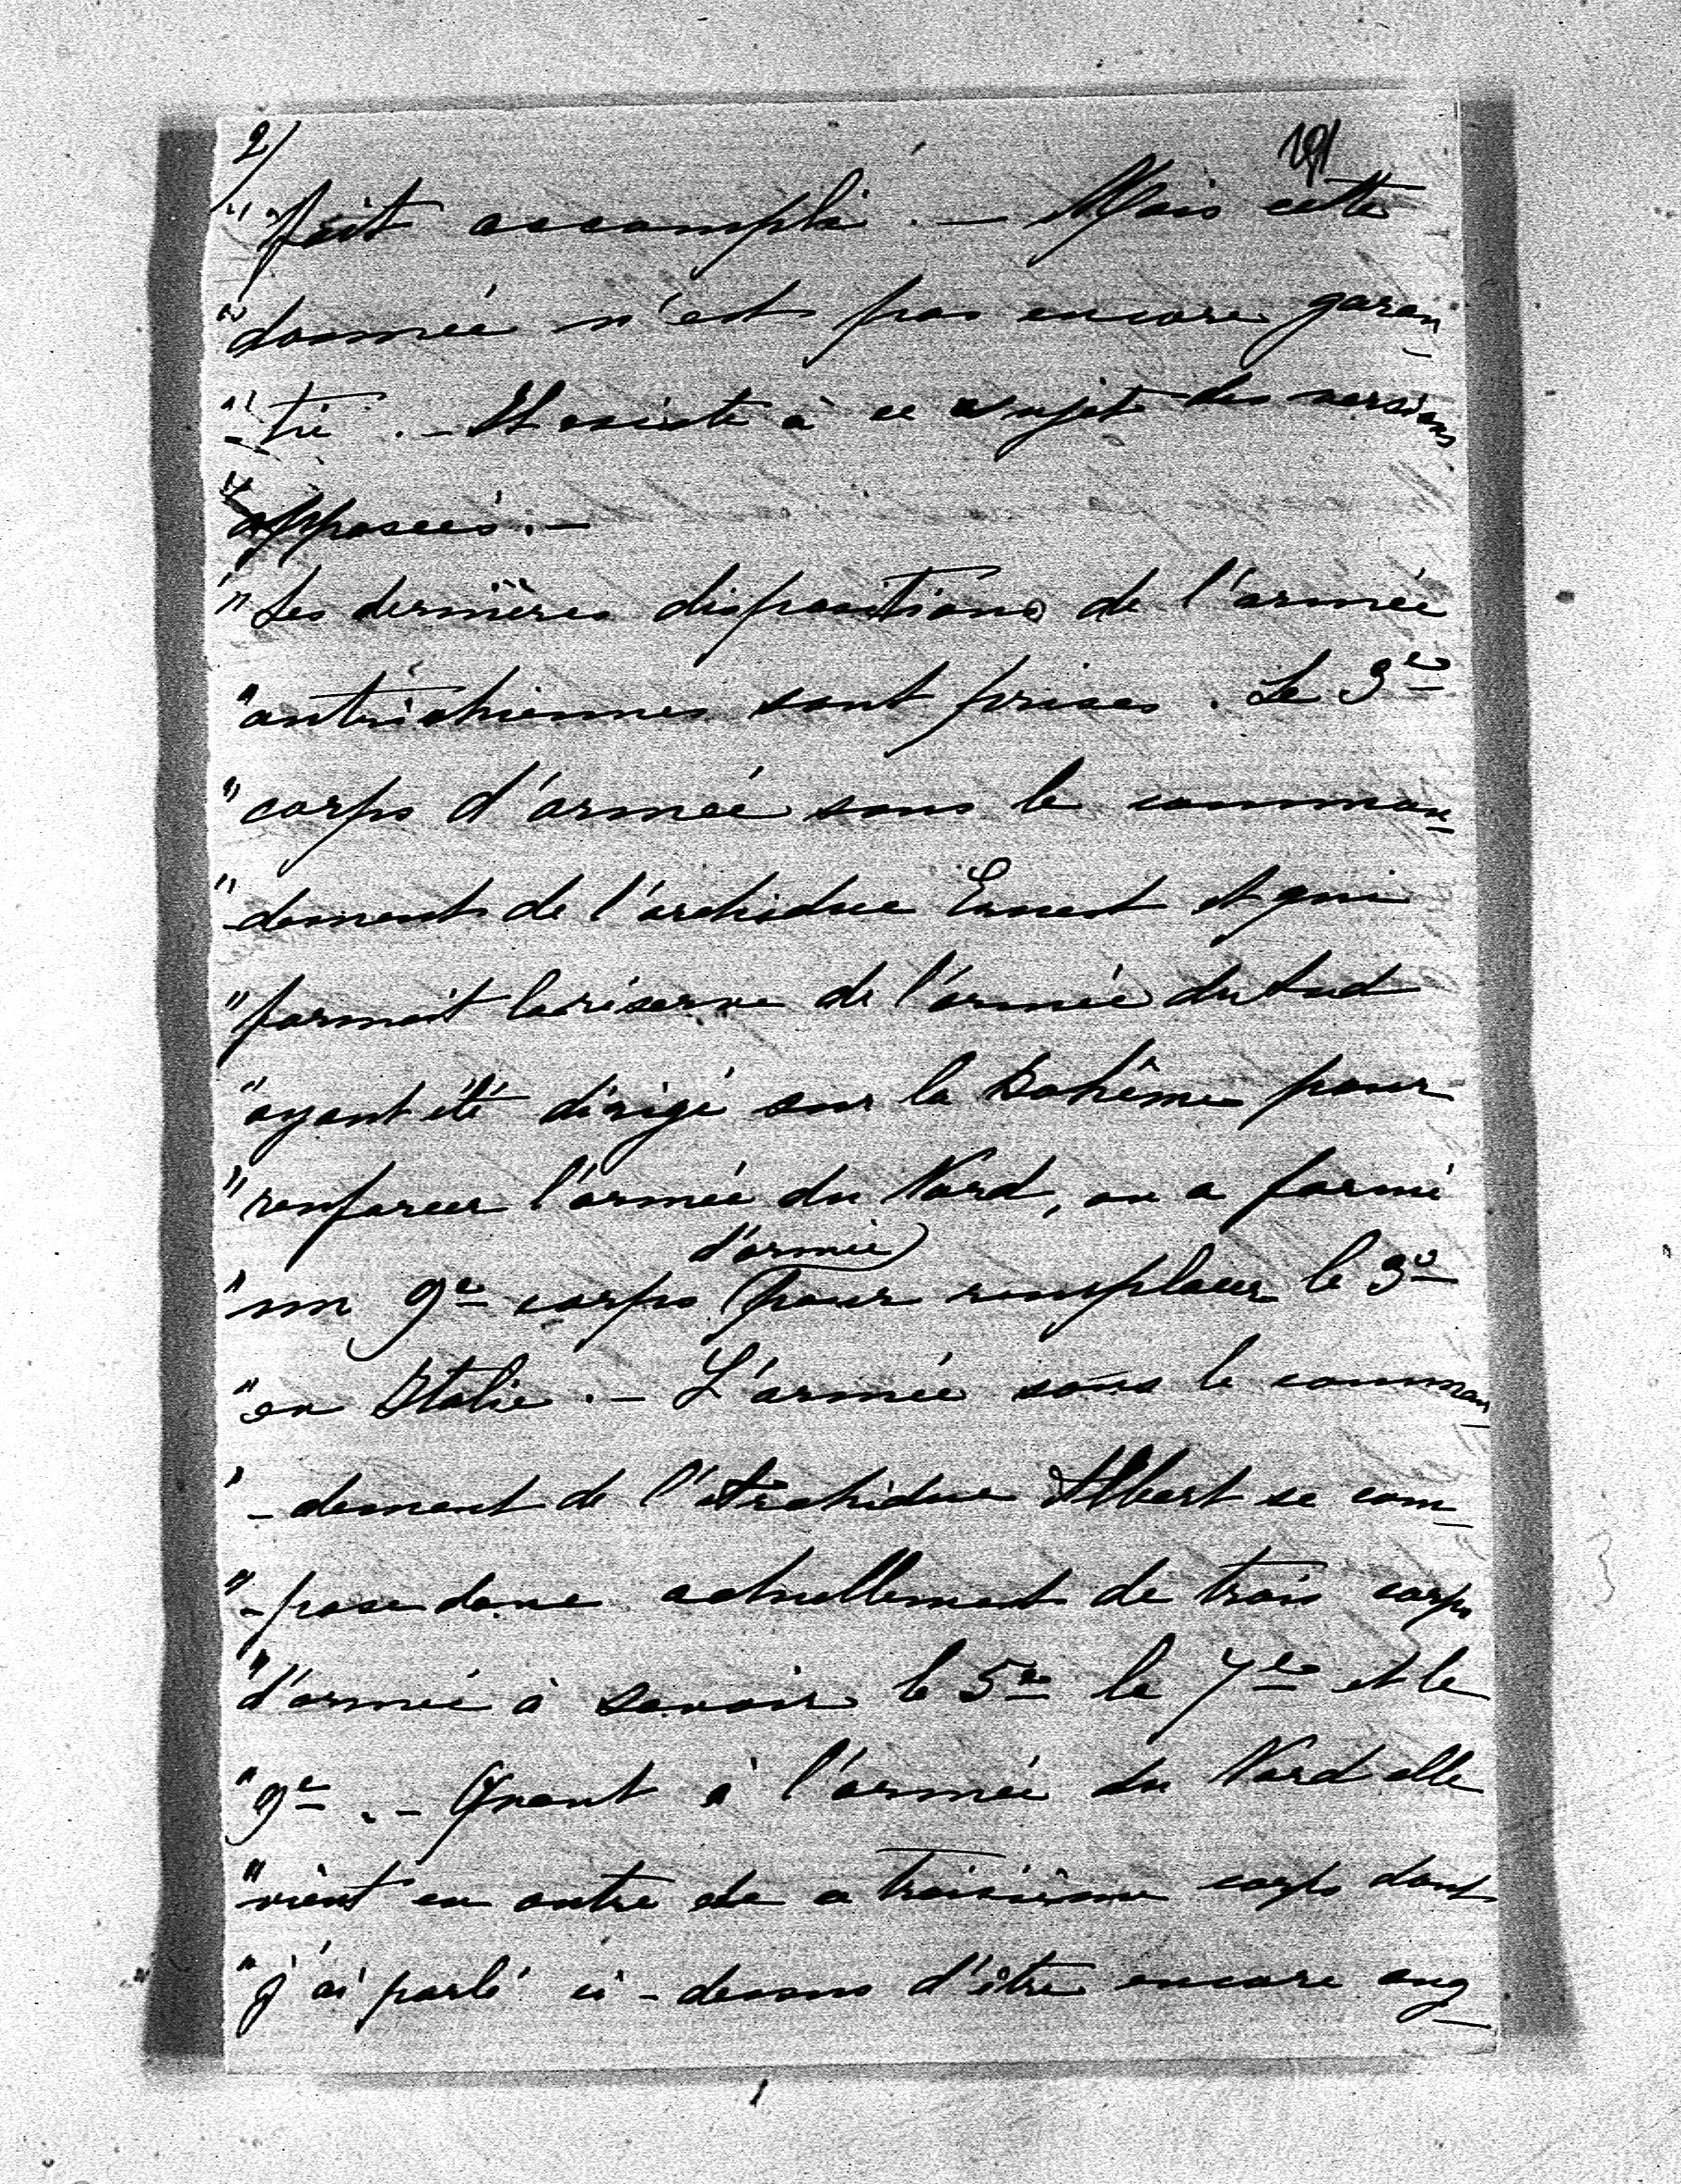 2/
191
" fait accompli. — Mais cette
" donnée n'est pas encore garan-
" -tie. — Il existe à ce sujet des versions
" opposées. —
" Les dernières dispositions de l'armée
" autrichiennes sont prises. Le 3e
" corps d'armée sous le comman-
" -dement de l'archiduc Ernest et qui
" formait la réserve de l'armée du Sud
" ayant été dirigé sur la Bohême pour
" renforcer l'armée du Nord, on a formé
d'armée
" un 9e corps pour remplacer le 3e
" en Italie. — L'armée sous le comman-
" -dement de l'Archiduc Albert se com-
" -pose donc actuellement de trois corps
" d'armée à savoir le 5e le 7e et le
" 9e. — Quant à l'armée du Nord elle
" vient en outre de a troisième corps dont
" j'ai parlé ci-dessus d'être encore aug-